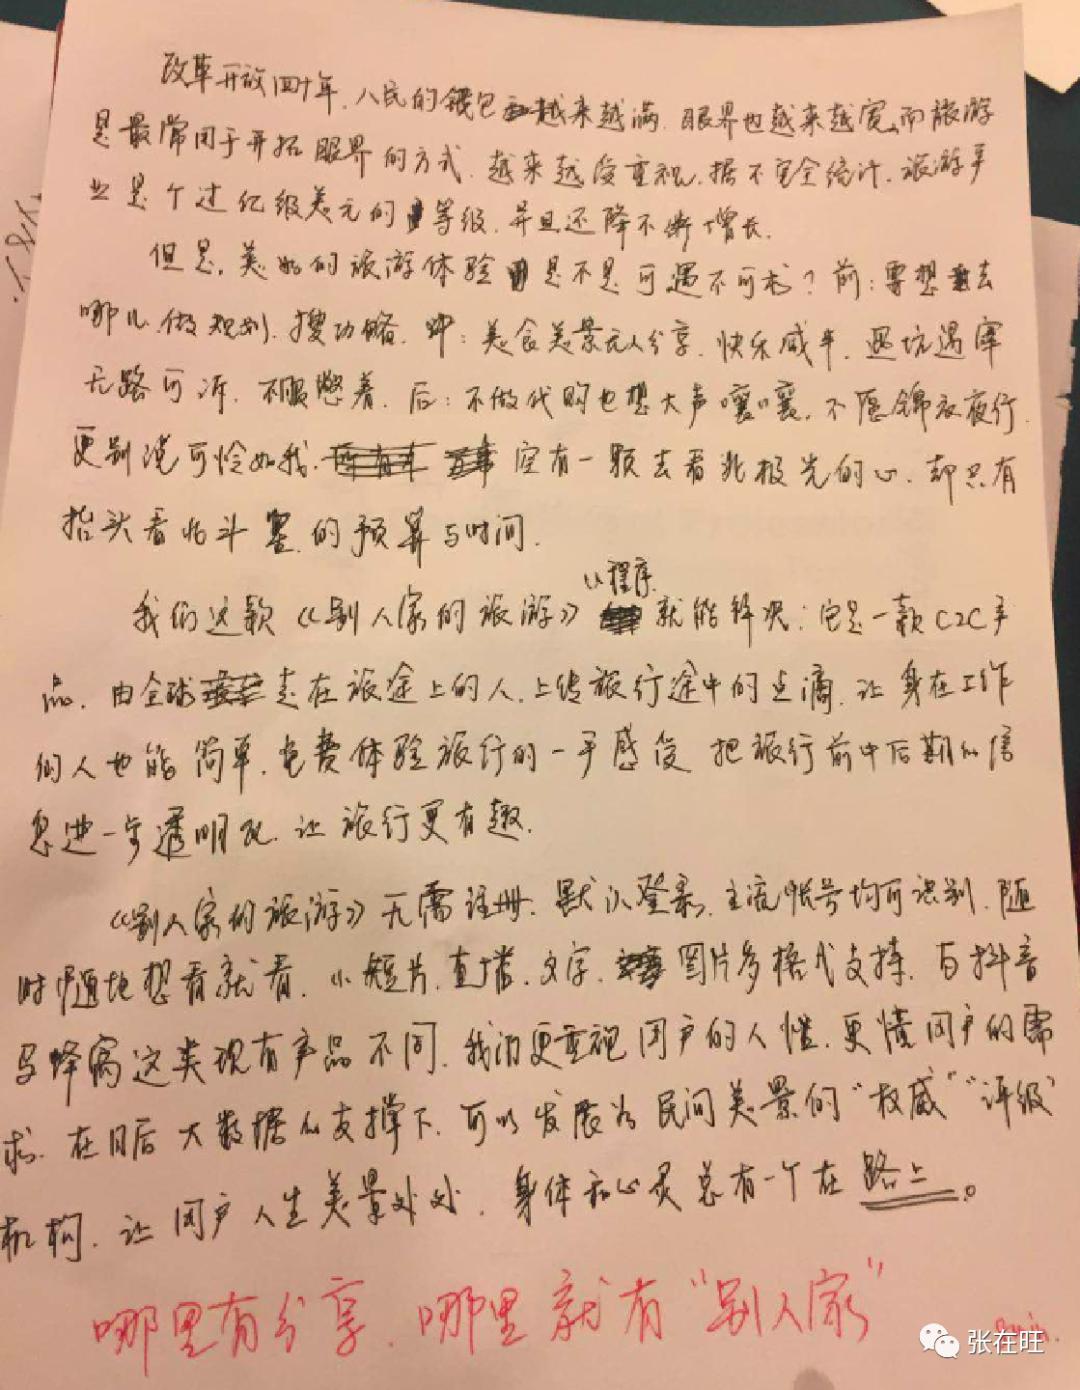 改革开放四十年，人民的钱包越来越满，眼界也越来越宽，而旅游
是最常用于开拓眼界的方式，越来越受重视，据不完全统计，旅游产
业是个过亿级美元的等级，并且还降不断增长。
但是，美好的旅游体验是不是可遇不可求？前：要想去
哪儿，做规划，搜功略，中：美食美景无人分享，快乐减半，遇坑遇宰
无路可诉，不服憋着，后：不做代购也想大声嚷嚷，不愿锦衣夜行，
更别说可怜如我，空有一颗去看北极光的心，却只有
抬头看北斗星的预算与时间。
小程序
我们这款《别人家的旅游》就能解决：它是一款C2C产
品，由全球走在旅途上的人，上传旅行途中的点滴，让身在工作
的人也能简单，免费体验旅行的一手感受，把旅行前中后期的信
息进一步透明化，让旅行更有趣。
《别人家的旅游》无需注册，默认登录，主流帐号均可识别，随
时随地想看就看，小短片，直播，文字，图片多格式支持，与抖音
马蜂窝这类现有产品不同，我们更重视用户的人性，更懂用户的需
求，在日后大数据的支撑下，可以发展为民间美景的“权威”“评级”
机构，让用户人生美景处处，身体和心灵总有一个在路上。
哪里有分享，哪里就有“别人家”
张在旺